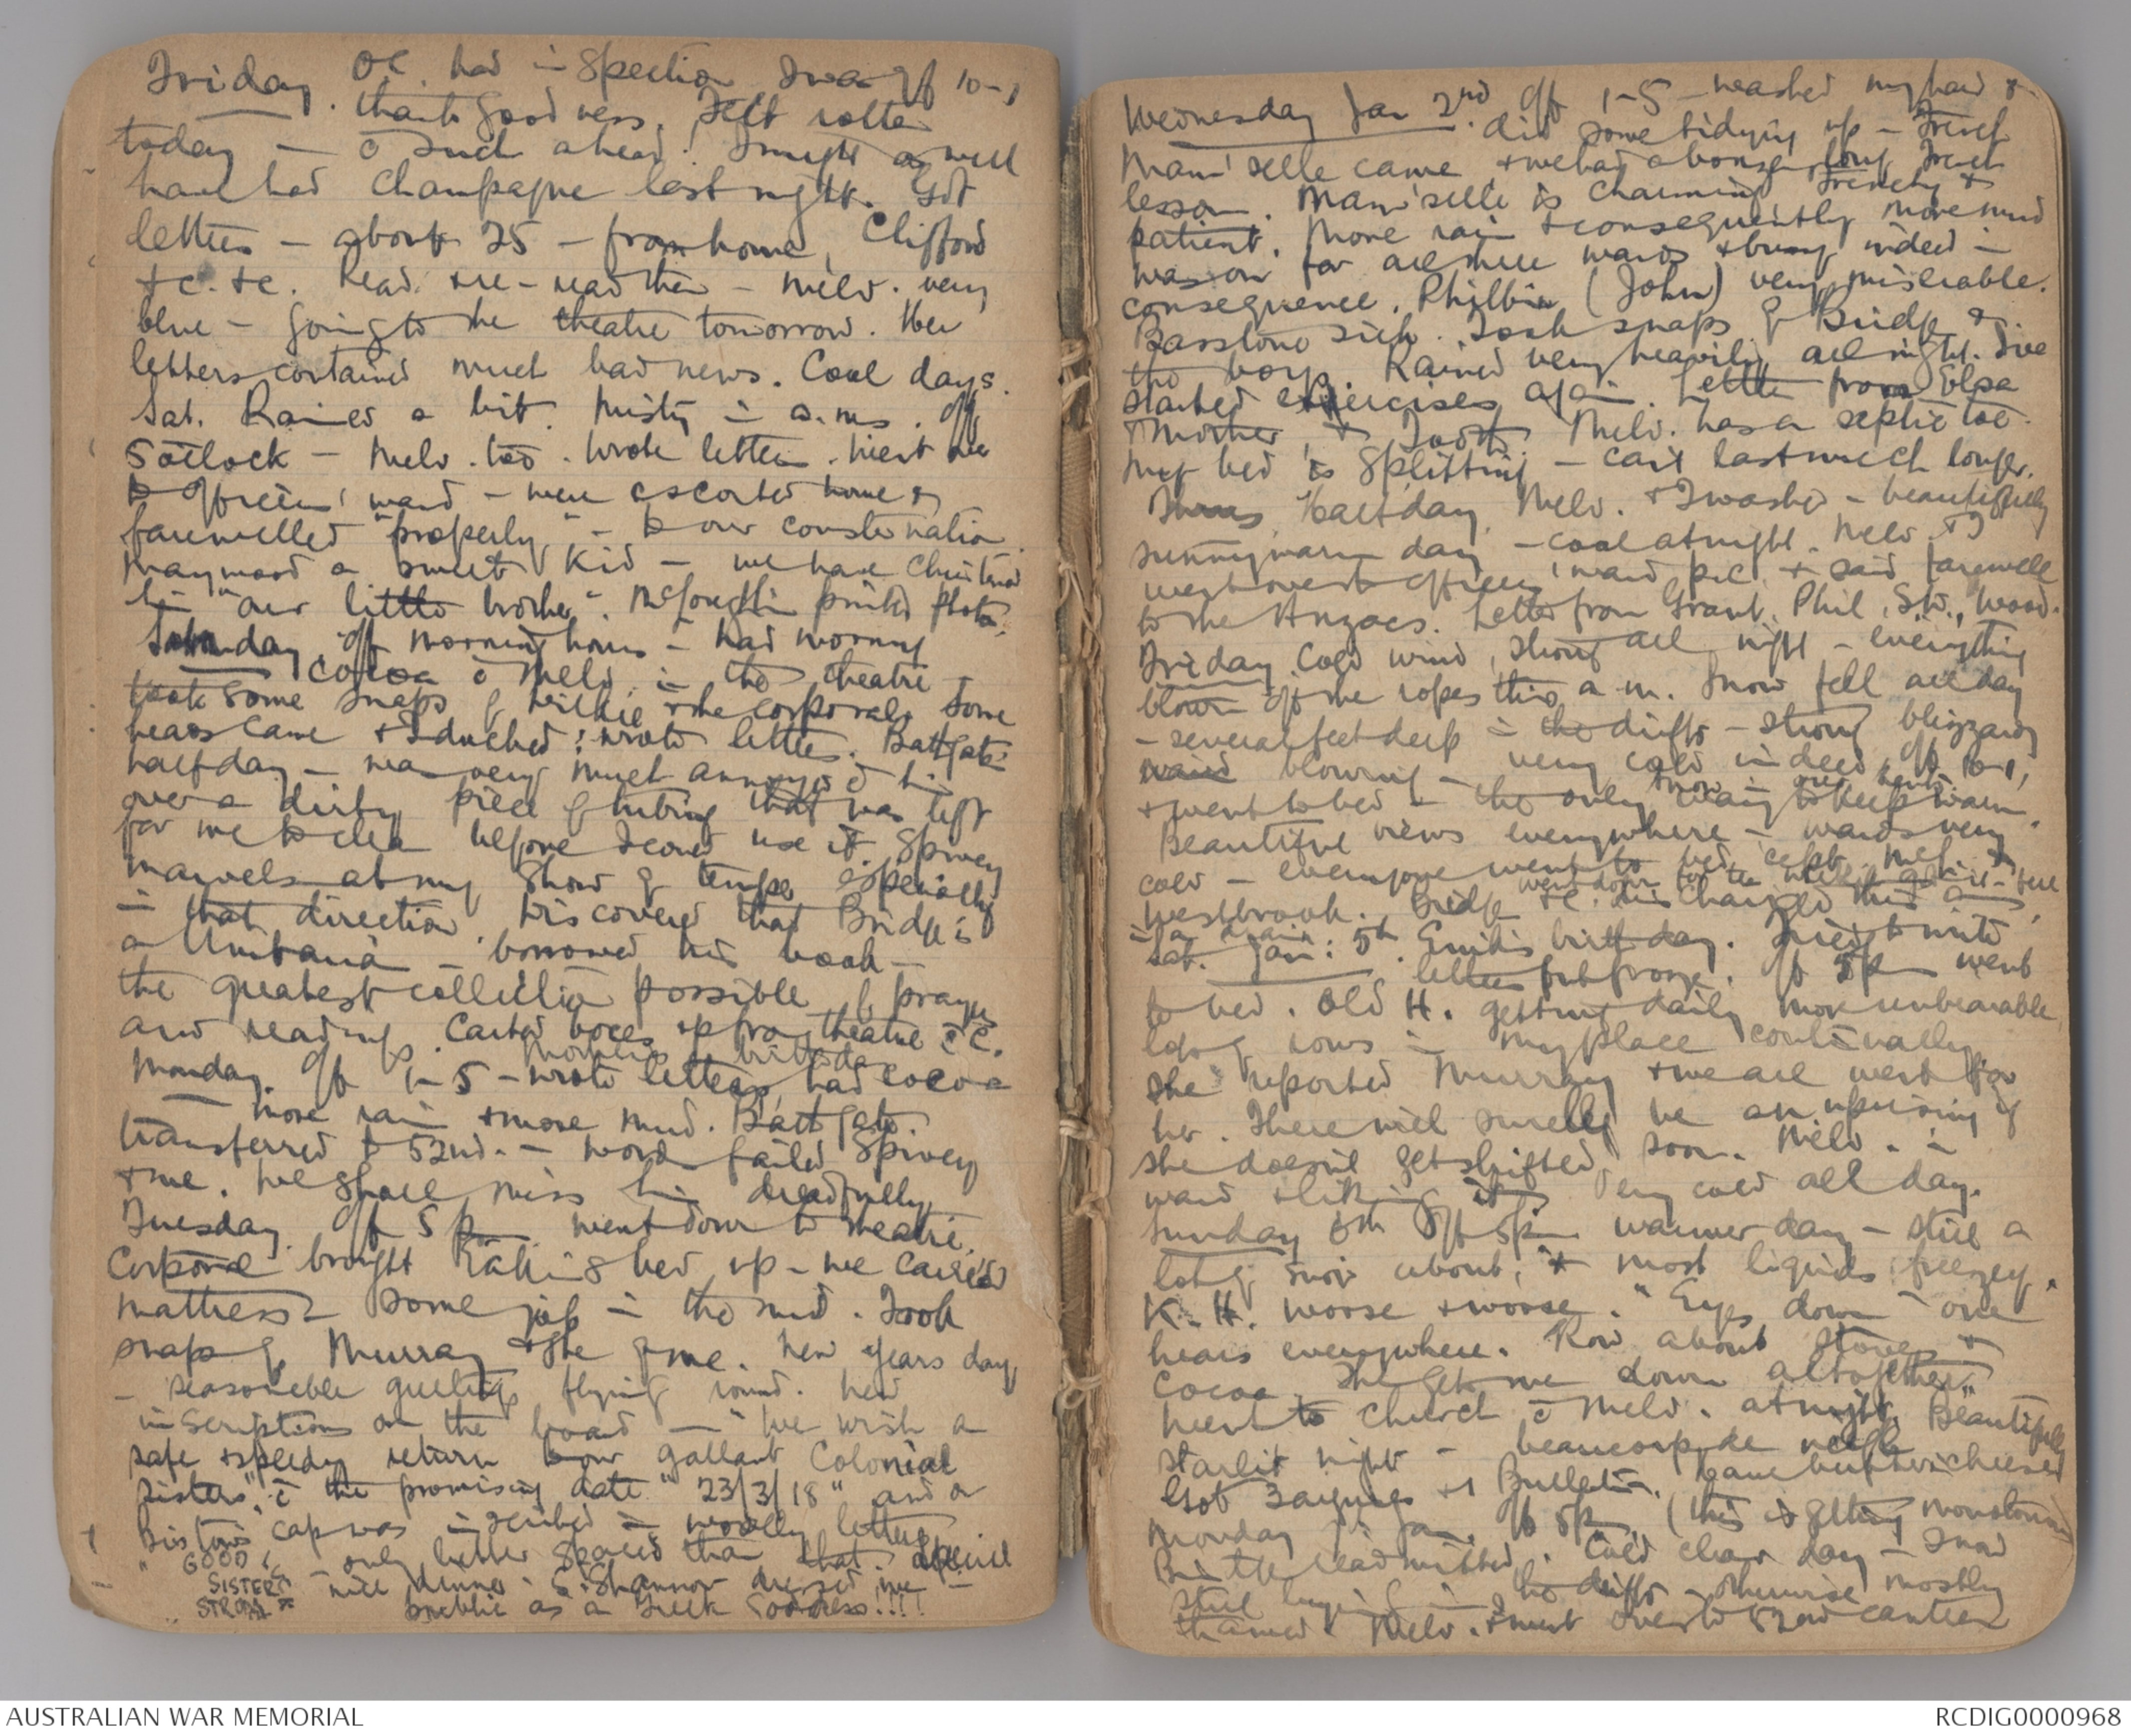 Friday. OC. had inspection I was off 10-1
thank goodness. Felt rotten
today — c̄ such a head! I might as well
have had champagne last night. Got
letters — about 25 — from home, Clifford
+c. +c. Read & re-read them — Melv. very
blue — going to the theatre tomorrow. Her
letters contained much bad news. Cool days.
Sat. Rained a bit. Misty in a.ms. Off
5 o'clock — Melv. too. Wrote letters. Went over
to Officers' ward — were escorted home &
farewelled "properly" — to our consternation.
Maywood a sweet kid — we have christened
him "our little brother". McLoughlin printed photos.
off morning hours — had morning
cocoa c̄ Melv. in the theatre —
took some snaps of & the corporal. Some
heads came & I ducked: wrote letters. Battgate
half day — was very much annoyed c̄ him
over a dirty piece of tubing that was left
for me to clean before I could use it. Spivey
marvels at my show of temper especially
in that direction. Discovered that Bridge is
a — borrowed his book —
the greatest collection possible of prayers
and readings. Carted boxes up from theatre c̄ C.
Monday. Off 1-5 — wrote letters, had cocoa
Mother's birthday
more rain & more mud. Battgate
transferred to 52nd. — words failed Spivey
& me. We shall miss him dreadfully.
Tuesday. Off 5 p.m. went down to theatre.
Corporal brought bed up — we carried
mattress — some job in the mud. Took
snaps of Murray & she of me. New Years day,
— seasonable greetings flying round. New
inscriptions on the board — "We wish a
safe & speedy return to our gallant Colonial
Sisters", c̄ the promising date "23/3/18" and a
cap was inscribed in woolly letters
"GOOD
SISTER
— only better spaced than that. Special
nice dinner. S. Shannon dressed me —
public as a Greek Goddess!!!!
Wednesday Jan 2nd. Off 1-5 — washed my hair &
did some tidying up — French
Mam'selle came & we had a bonzer long French
lesson. Mam'selle is charming Frenchy &
patient. More rain & consequently more mud
was on for all three wards & busy indeed in
consequence. Philbin (John) very miserable.
Barstone sick. Took snaps of Bridge &
the boys. Rained very heavily all night. I've
started exercises again. Letter from Elsa
& Mother, & Melv. has a septic toe.
My bed is splitting — can't last much longer.
Thurs Half day. Melv. & I washed — beautifully
sunny warm day — cool at night. Melv. & I
went over to Officers' ward & said farewell
to the Anzacs. Letter from Grant, Phil, S.W., Wood.
Friday Cold wind, strong all night — everything
blown off the ropes this a.m. Snow fell all day
— several feet deep in the drifts — strong blizzardy
wind blowing — very cold indeed, off 10-1,
& went to bed — the only way to keep warm.
Beautiful views everywhere — wards very
cold — everyone went to bed 'cept me &
Westbrook. Bridge +c. discharged this a.m.
Sat. Jan: 5th. birthday. Tried to write
letters but froze. Off 5 p.m. went
to bed. Old H. getting daily more unbearable
lots of rows in my place continually.
She reported Murray & we all went for
her. There will surely be an uprising if
she doesn't get shifted soon. Melv. in
ward & liking it. Very cold all day.
Sunday 6th Off 5 p.m. warmer day — still a
lot of snow about, & most liquids freezey.
K. H. worse & worse. "Eyes down" one
hears everywhere. Row about stoves &
cocoa. She gets me down altogether.
Went to church c̄ Melv. at night. Beautifully
starlit night — beaucoup de neige
Got 3 & 1 Bulletin.
Monday 7th Jan. Off 5 p.m. (this is getting monotonous)
readmitted. Cold clear day — snow
still lying in the drifts — otherwise mostly
thawed. Melv. & I went over to 52nd canteen
AUSTRALIAN WAR MEMORIAL
RCDIG0000968